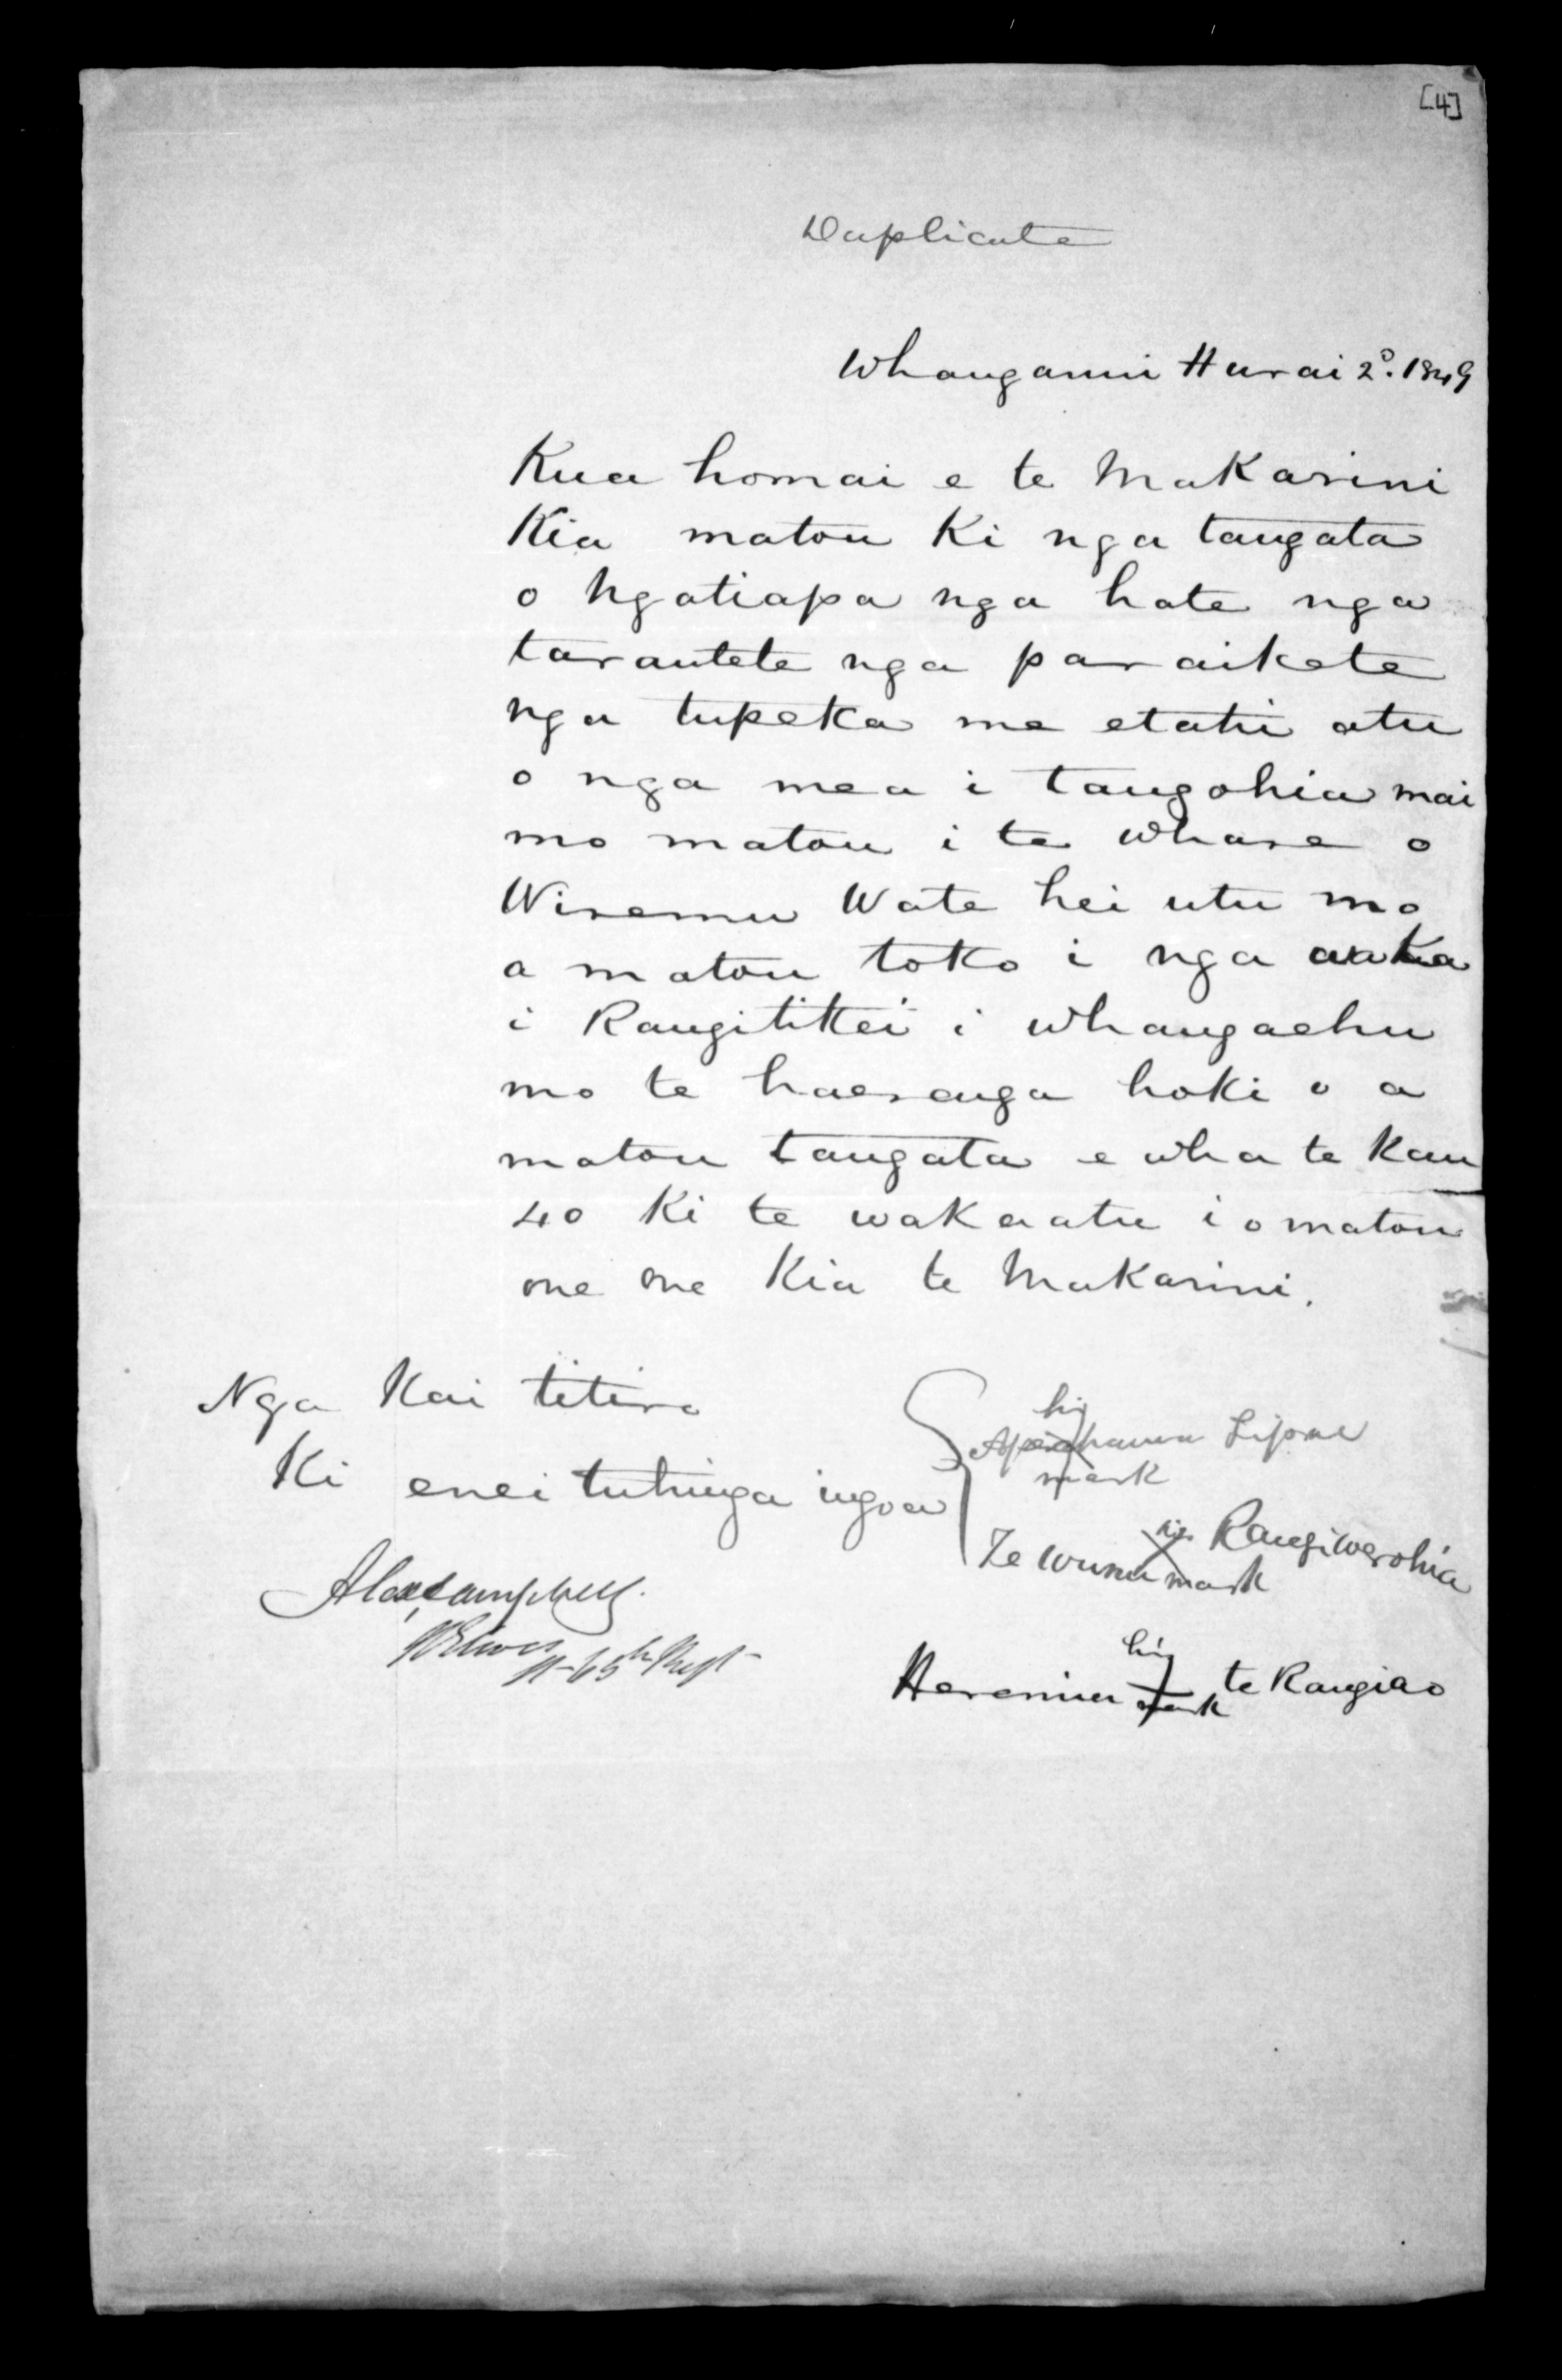 [4]
Duplicate
Whanganui Hurai 2º. 1849
Kua homai e te Makarini
Kia matou Ki nga tangata
o Ngatiapa nga hate nga
tarautete nga paraikete
nga tupeka me etahi atu
o nga mea i tangohia mai
mo matou i te whare o
Wiremu Wate hei utu mo
a matou toko i nga waka
i Rangitikei i Whangaehu
mo te haerenga hoki o a
matou tangata e wha te Kau
40 Ki te wakaatu i o matou
one one Kia te Makarini.
Nga Kai titiro
Ki enei tuhinga ingoa
his
Aperahama Tipae
mark
his Rangiwerohia
Te Wunu mark
Alex Campbell
65th Regt
his
Heremia te Rangiao
mark